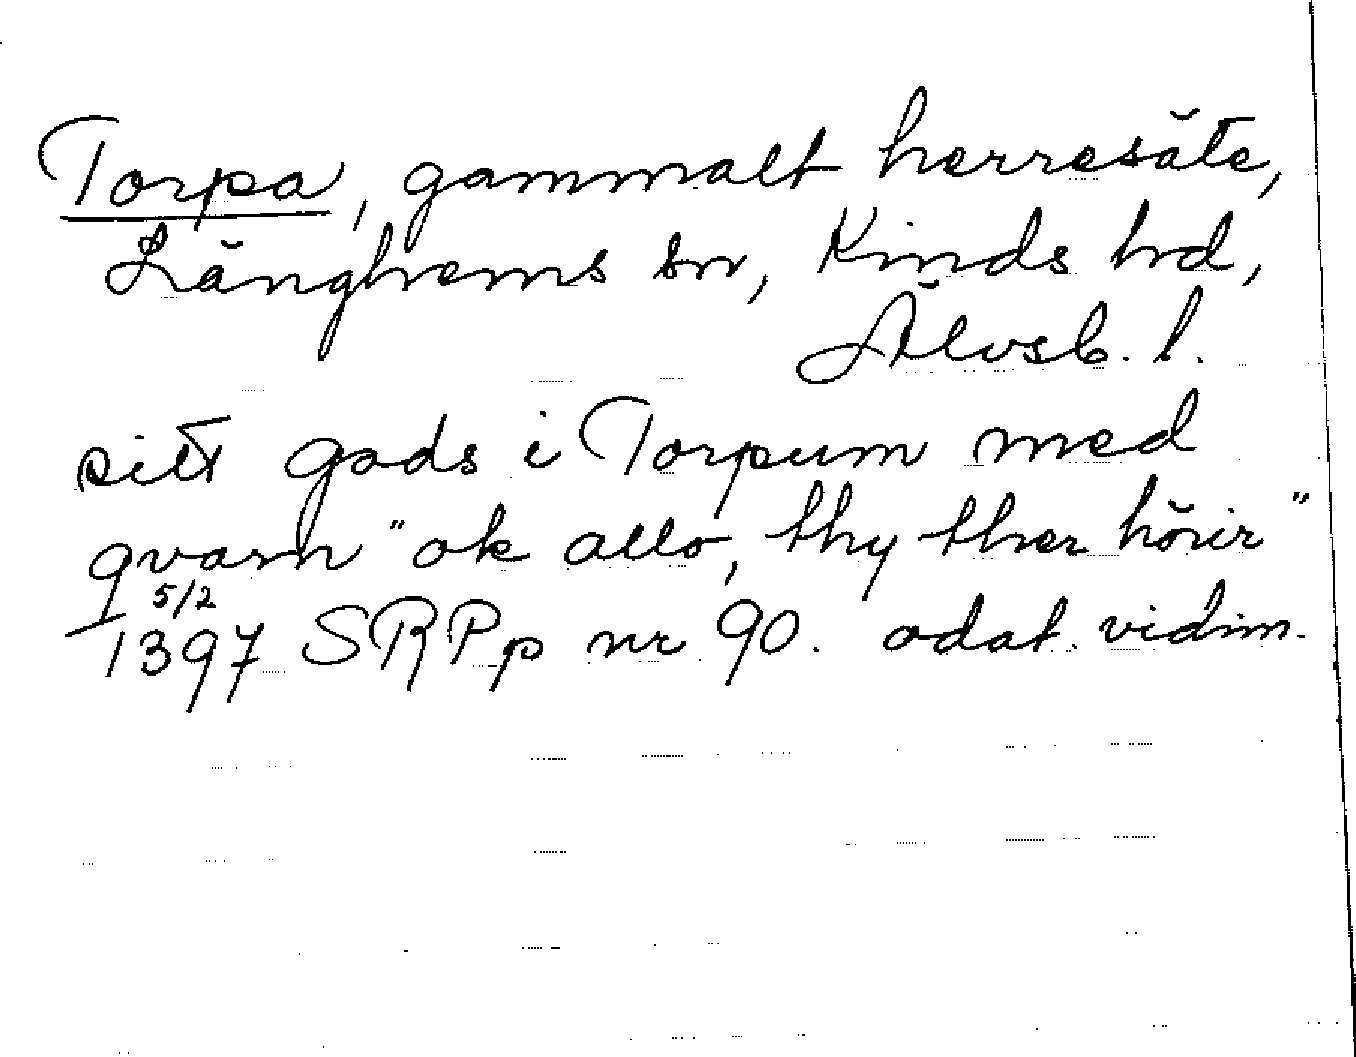 Torpa, gammalt herresäte,
Länghems sn, Kinds hd,
Älvsb. l.
sitt gods i Torpum med
qvarn "ok allo, thy ther hörir"
5/2
1397 SRPp nr 90. odat. vidim.